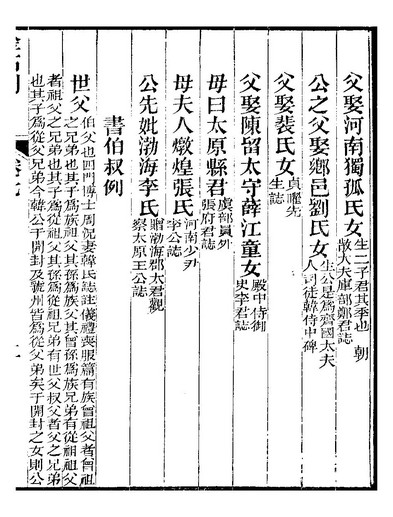 父娶河南獨孤氏女生二子君其季也 朝散大夫庫部鄭君誌
公之父娶鄉邑劉氏女生公是爲齊國太夫人司徒韓侍中碑
父娶裴氏女貞曜先生誌
父娶陳留太守薛江童女殿中侍御史李君誌
母曰太原縣君虞部員外張府君誌
母夫人燉煌張氏河南少尹李公誌
公先妣渤海李氏贈渤海郡太君觀察太原王公誌
書伯叔例
世父伯父也四門博士周況妻韓氏誌註儀禮喪服篇有族曾祖父者曾祖之兄弟也其子爲族祖父其孫爲族父其曾孫爲族兄弟有從祖祖父
者祖父之兄弟也其子爲從祖父其孫爲從祖兄弟有世父叔父者父之兄弟
也其子爲從父兄弟今韓公于開封及號州皆爲從父弟矣于開封之女則公